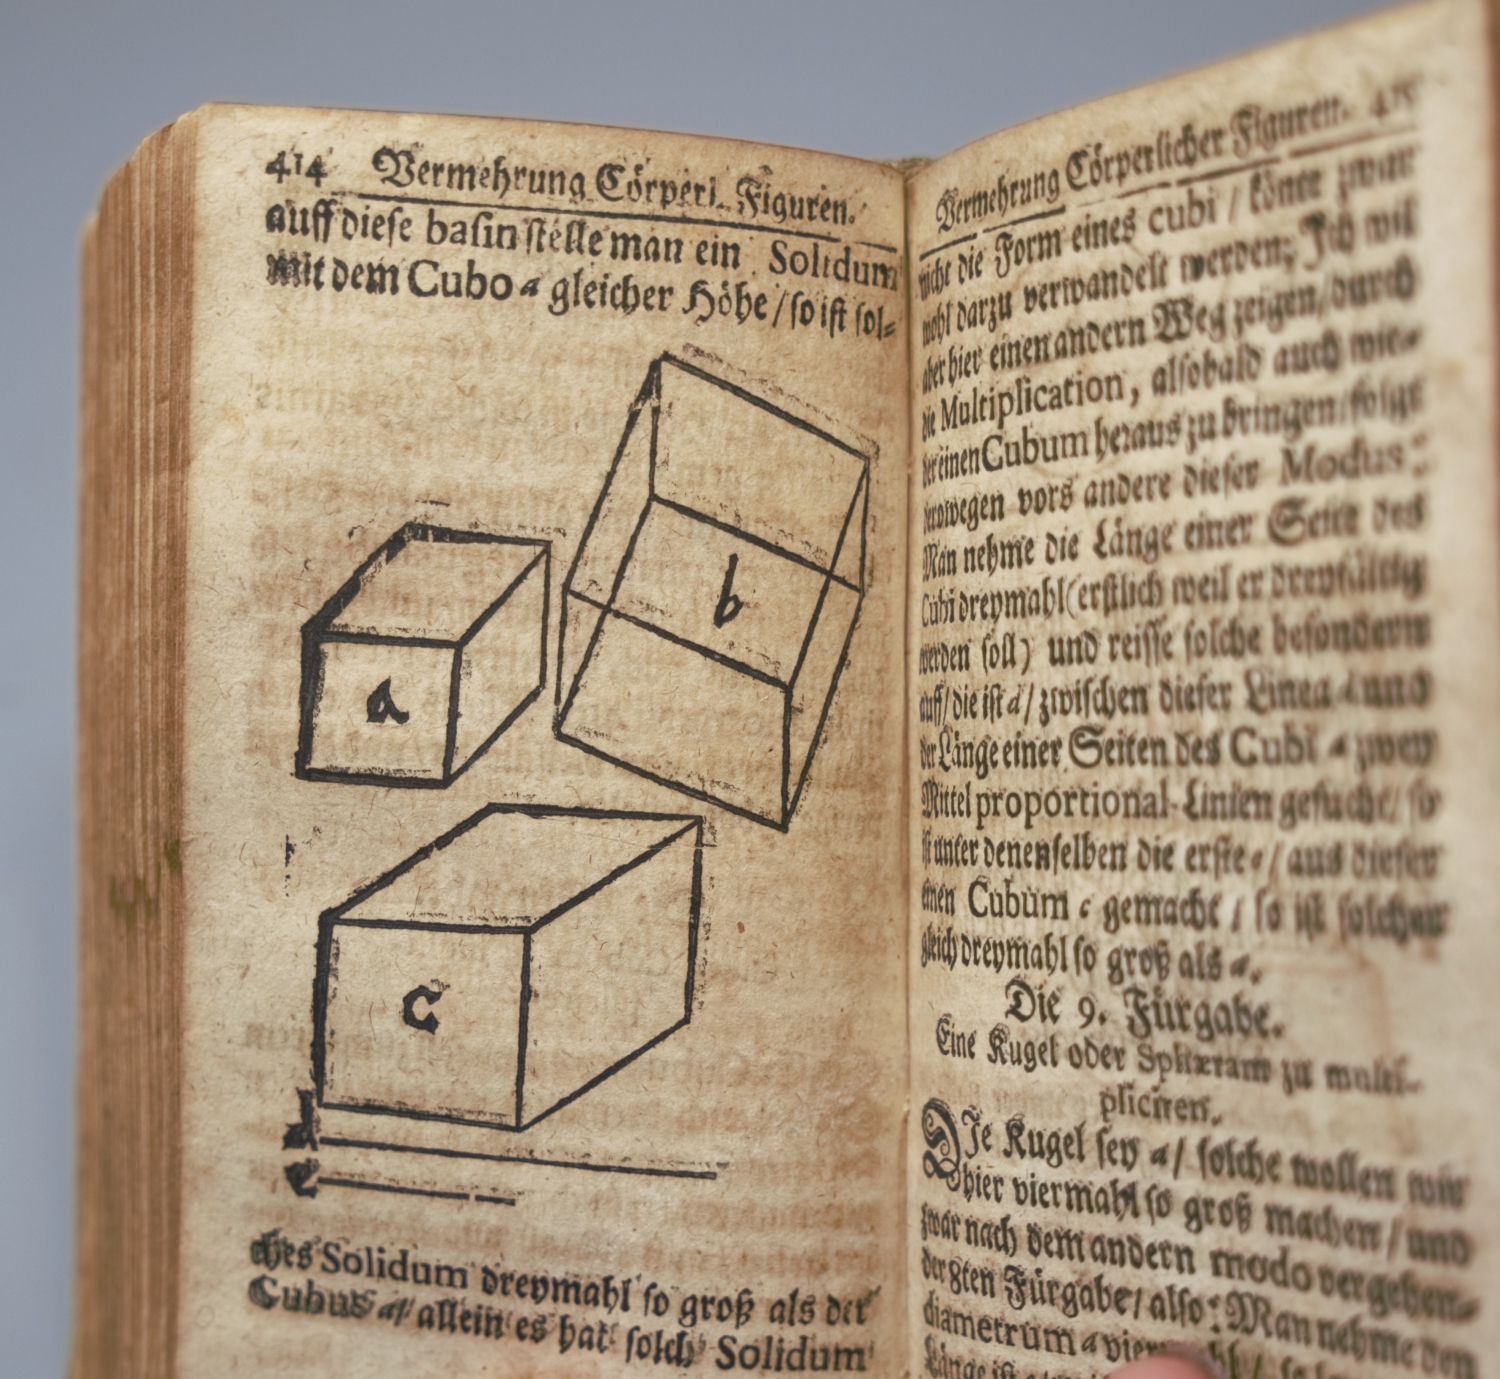 414 Vermehrung Cörperl. Figuren.
auff diese basin stelle man ein Solidum
mit dem Cubo a gleicher Höhe / so ist sol-
a
b
c
d
e
ches Solidum dreymahl so groß als der
Cubus a / allein es hat solch Solidum
Vermehrung Cörperlicher Figuren. 415
nicht die Form eines cubi / könte zwar
wohl darzu verwandelt werden; Ich wil
aber hier einen andern Weg zeigen / durch
die Multiplication, alsobald auch wie-
der einen Cubum heraus zu bringen / folgt
derowegen vors andere dieser Modus:
Man nehme die Länge einer Seite des
Cubi dreymahl (erstlich weil er dreyfältig
werden soll) und reisse solche besondern
auff / die ist d / zwischen dieser Linea d und
der Länge einer Seiten des Cubi a zwey
Mittel proportional-Linien gesucht / so
ist unter denenselben die erste e / aus dieser
einen Cubum c gemacht / so ist solcher
gleich dreymahl so groß als a.
Die 9. Fürgabe.
Eine Kugel oder Sphæram zu multi-
pliciren.
DJe Kugel sey a / solche wollen wir
hier viermahl so groß machen / und
zwar nach dem andern modo vergehen-
der 8ten Fürgabe / also: Man nehme den
diametrum a
Länge ist